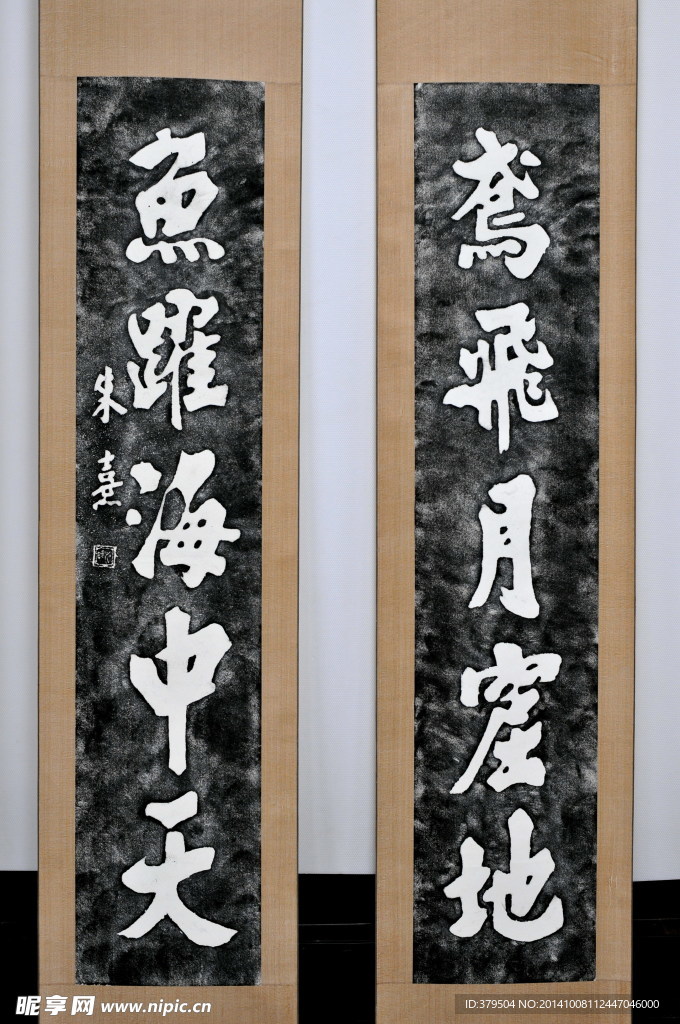 鳶飛月窟地
魚躍海中天
朱熹
昵享网 www.nipic.cn
ID:379504 NO:20141008112447046000